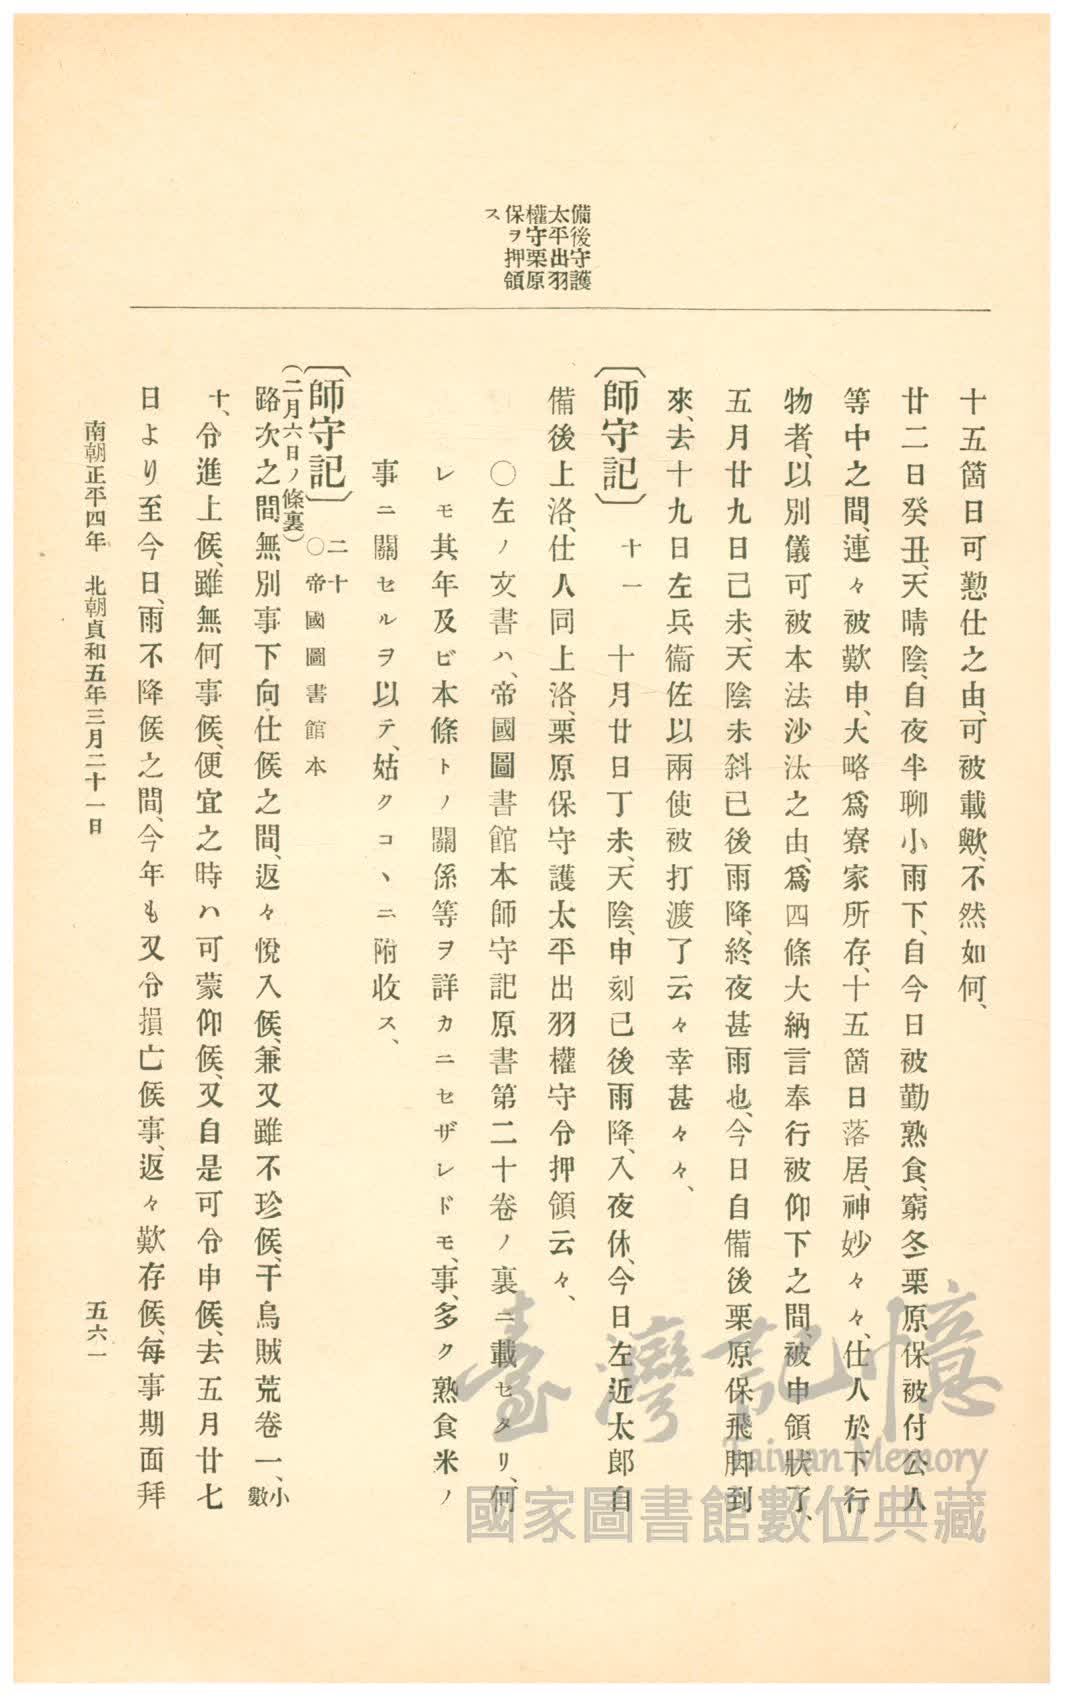 備後守護
太平出羽
權守栗原
保ヲ押領
ス
十五箇日可懃仕之由、可被載歟、不然如何、
廿二日癸丑、天晴陰、自夜半聊小雨下、自今日被勤熟食、窮冬栗原保被付公人
等中之間、連々被歎申、大略爲寮家所存、十五箇日落居、神妙々々、仕人於下行
物者、以別儀可被本法沙汰之由、爲四條大納言奉行被仰下之間、被申領狀了、
五月廿九日己未、天陰未斜已後雨降、終夜甚雨也、今日自備後栗原保飛脚到
來、去十九日左兵衞佐以兩使被打渡了云々幸甚々々、
〔師守記〕 十一 十月廿日丁未、天陰、申刻已後雨降、入夜休、今日左近太郎自
備後上洛、仕人同上洛、栗原保守護太平出羽權守令押領云々、
○左ノ文書ハ、帝國圖書館本師守記原書第二十卷ノ裏ニ載セタリ、何
レモ其年及ビ本條トノ關係等ヲ詳カニセザレドモ、事、多ク熟食米ノ
事ニ關セルヲ以テ、姑クコヽニ附收ス、
〔師守記〕 二十 ○帝國圖書館本
(二月六日ノ條裏)
路次之間、無別事下向仕候之間、返々悅入候、兼又雖不珍候、干烏賊荒卷一、小數
十、令進上候、雖無何事候、便宜之時ハ可蒙仰候、又自是可令申候、去五月廿七
日より至今日、雨不降候之間、今年も又令損亡候事、返々歎存候、每事期面拜
南朝正平四年 北朝貞和五年三月二十一日
五六一
臺灣記憶
Taiwan Memory
國家圖書館數位典藏